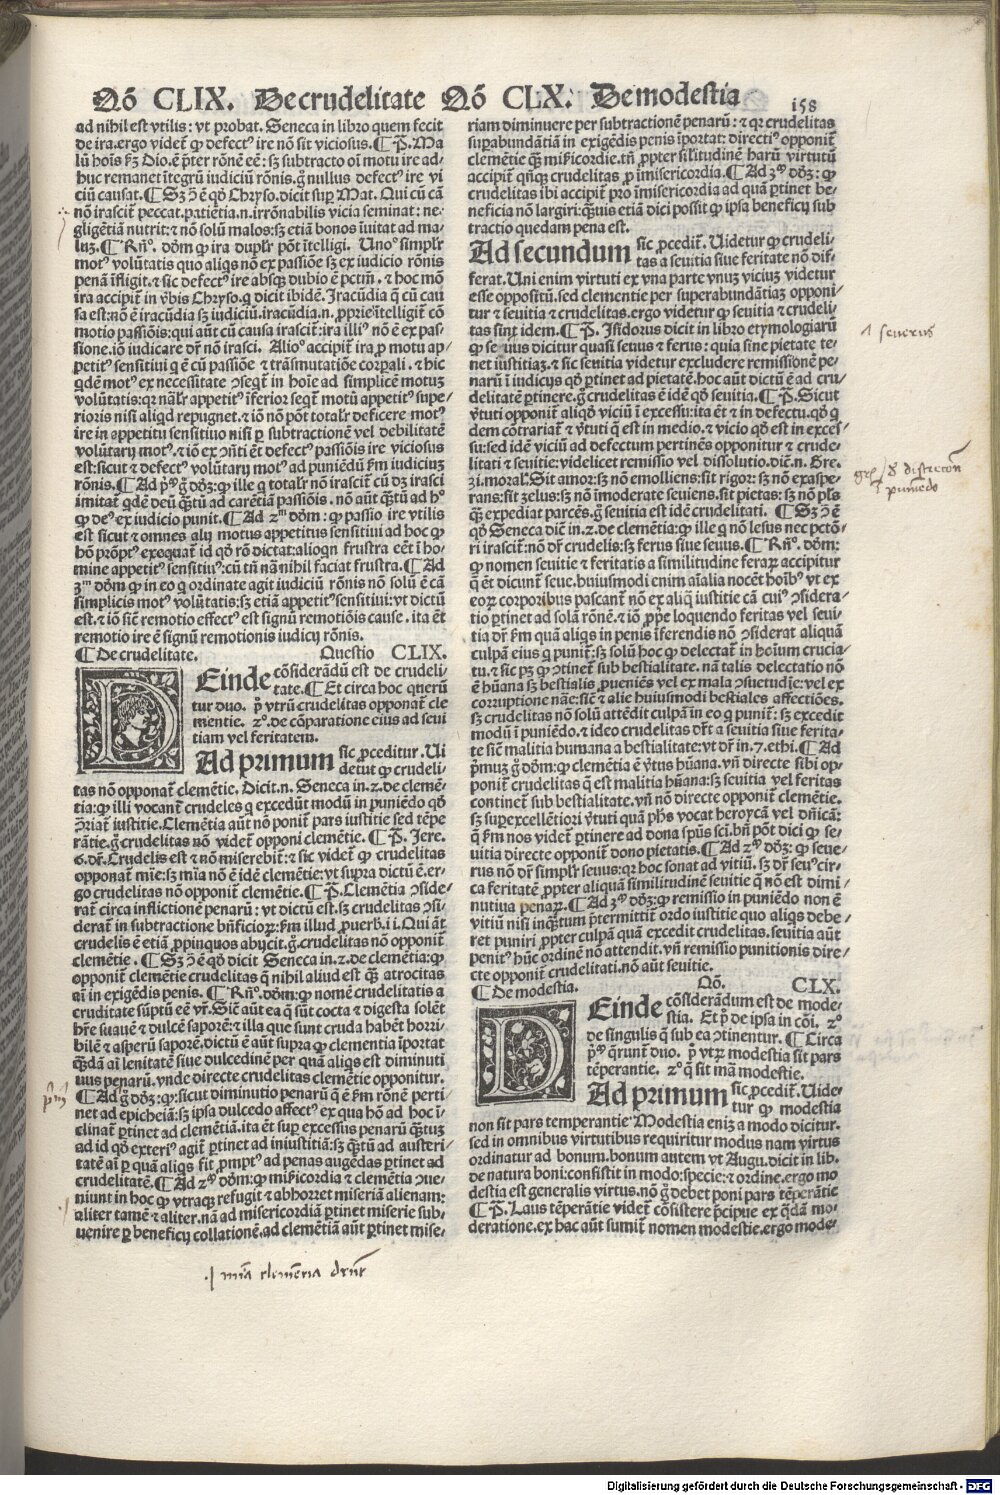 Qō CLIX. De crudelitate Qō CLX. De modestia 158
ad nihil est vtilis: vt probat. Seneca in libro quem fecit
de ira. ergo videt̄ ꝙ defectꝰ ire nō sit viciosus. ¶ P̄. Ma
lū hoīs ẜm Dio. ē p̄ter rōnē eē: sꝫ subtracto oī motu ire ad-
huc remanet ītegrū iudiciū rōnis. ḡ nullus defectꝰ ire vi
ciū causat. ¶ Sꝫ ↄ̄ ē qd̄ Chryso. dicit suꝑ Mat. Qui cū cā
nō irascit̄ peccat. patiētia .n. irrōnabilis vicia seminat: ne-
gligētiā nutrit: ⁊ nō solū malos: sꝫ etiā bonos īuitat ad ma-
luꝫ. ¶ Rn̄º. dōm ꝙ ira dupl̓r pōt ītelligi. Unoº simpl̓r
motꝰ volūtatis quo aliqs nō ex passiōe sꝫ ex iudicio rōnis
penā īfligit. ⁊ sic defectꝰ ire absqꝫ dubio ē pctm̄. ⁊ hoc mō
ira accipit̄ in v̄bis Chryso. q̄ dicit ibidē. Iracūdia q̄ cū cau
sa est: nō ē iracūdia sꝫ iudiciū. iracūdia .n. ꝓprie ītelligit̄ cō
motio passiōis: qui aūt cū causa irascit̄: ira illiꝰ nō ē ex pas-
sione. iō iudicare dr̄ nō irasci. Alioº accipit̄ ira ꝓ motu ap-
petitꝰ sensitiui q̄ ē cū passiōe ⁊ trāsmutatiōe corꝑali. ⁊ hic
qdē motꝰ ex necessitate ↄseqt̄ in hoīe ad simplicē motuꝫ
volūtatis: qꝛ nāl̓r appetitꝰ īferior seqt̄ motū appetitꝰ supe-
rioris nisi aliqd repugnet. ⁊ iō nō pōt total̓r deficere motꝰ
ire in appetitu sensitiuo nisi ꝑ subtractionē vel debilitatē
volūtarij motꝰ. ⁊ iō ex ↄn̄ti ēt defectꝰ passiōis ire viciosus
est: sicut ⁊ defectꝰ volūtarij motꝰ ad puniēdū ẜm iudiciuꝫ
rōnis. ¶ Ad pᵐ ḡ dōꝫ: ꝙ ille q̄ total̓r nō irascit̄ cū dꝫ irasci
imitat̄ qdē deū q̄ꝫtū ad carētiā passiōis. nō aūt q̄ꝫtū ad hº
ꝙ deꝰ ex iudicio punit. ¶ Ad 2ᵐ dōm: ꝙ passio ire vtilis
est sicut ⁊ omnes alij motus appetitus sensitiui ad hoc ꝙ
hō prōptꝰ exequat̄ id qd̄ rō dictat: alioqn̄ frustra eēt ī ho-
mine appetitꝰ sensitiuꝰ: cū tn̄ nā nihil faciat frustra. ¶ Ad
3ᵐ dōm ꝙ in eo q̄ ordinate agit iudiciū rōnis nō solū ē cā
simplicis motꝰ volūtatis: sꝫ etiā appetitꝰ sensitiui: vt dictū
est. ⁊ iō sic̄ remotio effectꝰ est signū remotiōis cause. ita ēt
remotio ire ē signū remotionis iudicij rōnis.
¶ De crudelitate. Questio CLIX.
Deinde cōsiderādū est de crudeli
tate. ¶ Et circa hoc querū
tur duo. pº vtrū crudelitas opponat̄ cle
mentie. 2º. de cōparatione eius ad seui
tiam vel feritatem.
Ad primum sic ꝓceditur. Ui
detur ꝙ crudeli-
tas nō opponat̄ clemētie. Dicit .n. Seneca in .2. de clemē-
tia: ꝙ illi vocant̄ crudeles q̄ excedūt modū in puniēdo qd̄
ↄ̄riat̄ iustitie. Clemētia aūt nō ponit̄ pars iustitie sed tēpe
rātie. ḡ crudelitas nō videt̄ opponi clemētie. ¶ P̄. Jere.
6. dr̄. Crudelis est ⁊ nō miserebit̄: ⁊ sic videt̄ ꝙ crudelitas
opponat̄ mīe: sꝫ mīa nō ē idē clemētie: vt supra dictū ē. er-
go crudelitas nō opponit̄ clemētie. ¶ P̄. Clemētia ↄside-
rat̄ circa inflictionē penarū: vt dictū est. sꝫ crudelitas ↄsi-
derat̄ in subtractione bn̄ficioꝝ: ẜm illud ꝓuerb. ii. Qui āt
crudelis ē etiā ꝓpinquos abijcit. ḡ. crudelitas nō opponit̄
clemētie. ¶ Sꝫ ↄ̄ ē qd̄ dicit Seneca in .2. de clemētia: ꝙ
opponit̄ clemētie crudelitas q̄ nihil aliud est q̄ꝫ atrocitas
aī in exigēdis penis. ¶ Rn̄º. dōm: ꝙ nomē crudelitatis a
cruditate sūptū eē vr̄. Sic̄ aūt ea q̄ sūt cocta ⁊ digesta solēt
hr̄e suauē ⁊ dulcē saporē: ⁊ illa que sunt cruda habēt horri-
bilē ⁊ asperū saporē. dictū ē aūt supra ꝙ clemētia īportat
q̄ꝫdā aī lenitatē siue dulcedinē per quā aliqs est diminuti
uus penarū. vnde directe crudelitas clemētie opponitur.
¶ Ad ḡ dōꝫ: ꝙ: sicut diminutio penarū q̄ ē ẜm rōnē perti-
net ad epicheiā: sꝫ ipsa dulcedo affectꝰ ex qua hō ad hoc ī-
clinat̄ ꝑtinet ad clemētiā. ita ēt suꝑ excessus penarū q̄ꝫtuꝫ
ad id qd̄ exteriꝰ agit̄ ꝑtinet ad iniustitiā: sꝫ q̄ꝫtū ad austeri-
tatē aī ꝑ quā aliqs fit ꝓmptꝰ ad penas augēdas ꝑtinet ad
crudelitatē. ¶ Ad 2ᵐ dōm: ꝙ mīkicordia ⁊ clemētia ↄue-
niunt in hoc ꝙ vtraqꝫ refugit ⁊ abhorret miseriā alienam:
aliter tamē ⁊ aliter. nā ad misericordiā ꝑtinet miserie sub-
uenire ꝑ beneficij collationē. ad clemētiā aūt ꝑtinet mise-
riam diminuere per subtractionē penarū: ⁊ qꝛ crudelitas
suꝑabundātiā in exigēdis penis īportat: directiꝰ opponit̄
clemētie q̄ꝫ mīkicordie. tn̄ ꝓpter sil̓itudinē harū virtutū
accipit̄ qn̄qꝫ crudelitas ꝓ īmisericordia. ¶ Ad 3ᵐ dōꝫ: ꝙ
crudelitas ibi accipit̄ pro īmisericordia ad quā ꝑtinet be-
neficia nō largiri: q̄ꝫuis etiā dici possit ꝙ ipsa beneficij sub
tractio quedam pena est.
Ad secundum sic ꝓcedit̄. Uidetur ꝙ crudeli-
tas a seuitia siue feritate nō dif-
ferat. Uni enim virtuti ex vna parte vnuꝫ viciuꝫ videtur
esse oppositū. sed clementie per superabundātiaꝫ opponi-
tur ⁊ seuitia ⁊ crudelitas. ergo videtur ꝙ seuitia ⁊ crudeli-
tas sint idem. ¶ P̄. Isidorus dicit in libro etymologiarū
ꝙ seuius dicitur quasi seuus ⁊ ferus: quia sine pietate te-
net iustitiaꝫ. ⁊ sic seuitia videtur excludere remissionē pe-
narū ī iudicijs qd̄ ꝑtinet ad pietatē. hoc aūt dictū ē ad cru-
delitatē ꝑtinere. ḡ crudelitas ē idē qd̄ seuitia. ¶ P̄. Sicut
v̄tuti opponit̄ aliqd̄ viciū ī excessu: ita ēt ⁊ in defectu. qd̄ q̄
dem cōtrariat̄ ⁊ v̄tuti q̄ est in medio. ⁊ vicio qd̄ est in exces-
su: sed idē viciū ad defectum pertinēs opponitur ⁊ crude-
litati ⁊ seuitie: videlicet remissio vel dissolutio. dic̄ .n. Gre.
zi. moral̓. Sit amor: sꝫ nō emolliens: sit rigor: sꝫ nō exaspe-
rans: sit zelus: sꝫ nō īmoderate seuiens. sit pietas: sꝫ nō pl̓s
q̄ꝫ expediat parcēs. ḡ seuitia est idē crudelitati. ¶ Sꝫ ↄ̄ ē
qd̄ Seneca dic̄ in .2. de clemētia: ꝙ ille q̄ nō lesus nec pctō-
ri irascit̄: nō dr̄ crudelis: sꝫ ferus siue seuus. ¶ Rn̄º. dōm:
ꝙ nomen seuitie ⁊ feritatis a similitudine feraꝝ accipitur
q̄ ēt dicunt̄ seue. huiusmodi enim aīalia nocēt hoībꝰ vt ex
eoꝝ corporibus pascant̄ nō ex aliq̄ iustitie cā cuiꝰ ↄsidera-
tio ꝑtinet ad solā rōnē. ⁊ iō ꝓpe loquendo feritas vel seui-
tia dr̄ ẜm quā aliqs in penis īferendis nō ↄsiderat aliquā
culpā eius q̄ punit̄: sꝫ solū hoc ꝙ delectat̄ in hoīum crucia-
tu. ⁊ sic pꝫ ꝙ ↄtinet̄ sub bestialitate. nā talis delectatio nō
ē hūana sꝫ bestialis ꝓueniēs vel ex mala ↄsuetudīe: vel ex
corruptione nāe: sic̄ ⁊ alie huiusmodi bestiales affectiōes.
sꝫ crudelitas nō solū attēdit culpā in eo q̄ punit̄: sꝫ excedit
modū ī puniēdo. ⁊ ideo crudelitas dr̄t a seuitia siue ferita-
te sic̄ malitia humana a bestialitate: vt dr̄ in .7. ethi. ¶ Ad
pᵐuꝫ ḡ dōm: ꝙ clemētia ē v̄tus hūana. vn̄ directe sibi op-
ponit̄ crudelitas q̄ est malitia hūana: sꝫ seuitia vel feritas
continet̄ sub bestialitate. vn̄ nō directe opponit̄ clemētie.
sꝫ suꝑexcellētiori v̄tuti quā ph̄s vocat heroycā vel dīuinā:
q̄ ẜm nos videt̄ ꝑtinere ad dona sp̄us sc̄i. bn̄ pōt dici ꝙ se-
uitia directe opponit̄ dono pietatis. ¶ Ad 2ᵐ dōꝫ: ꝙ seue-
rus nō dr̄ simpl̓r seuus: qꝛ hoc sonat ad vitiū. sꝫ dr̄ seuꝰ cir-
ca feritatē ꝓpter aliquā similitudinē seuitie q̄ nō est dimi-
nutiua penaꝝ. ¶ Ad 3ᵐ dōꝫ: ꝙ remissio in puniēdo non ē
vitiū nisi inq̄ꝫtum p̄termittit̄ ordo iustitie quo aliqs debe-
ret puniri ꝓpter culpā quā excedit crudelitas. seuitia aūt
penitꝰ hūc ordinē nō attendit. vn̄ remissio punitionis dire-
cte opponit̄ crudelitati. nō aūt seuitie.
¶ De modestia. Qō. CLX.
Deinde cōsiderādum est de mode-
stia. Et pº de ipsa in cōi. 2º
de singulis q̄ sub ea ↄtinentur. ¶ Circa
pᵐ q̄runt̄ duo. pº vtꝝ modestia sit pars
tēperantie. 2º q̄ sit mā modestie.
Ad primum sic ꝓcedit̄. Uide-
tur ꝙ modestia
non sit pars temperantie: Modestia enīꝫ a modo dicitur.
sed in omnibus virtutibus requiritur modus nam virtus
ordinatur ad bonum. bonum autem vt Augu. dicit in lib.
de natura boni: consistit in modo: specie: ⁊ ordine. ergo mo
destia est generalis virtus. nō ḡ debet poni pars tēperātie
¶ P̄. Laus tēperātie videt̄ cōsistere p̄cipue ex q̄dā mo-
deratione. ex hac aūt sumit̄ nomen modestie. ergo mode-
severus
mīa clemencia drn̄t
Digitalisierung gefördert durch die Deutsche Forschungsgemeinschaft - DFG